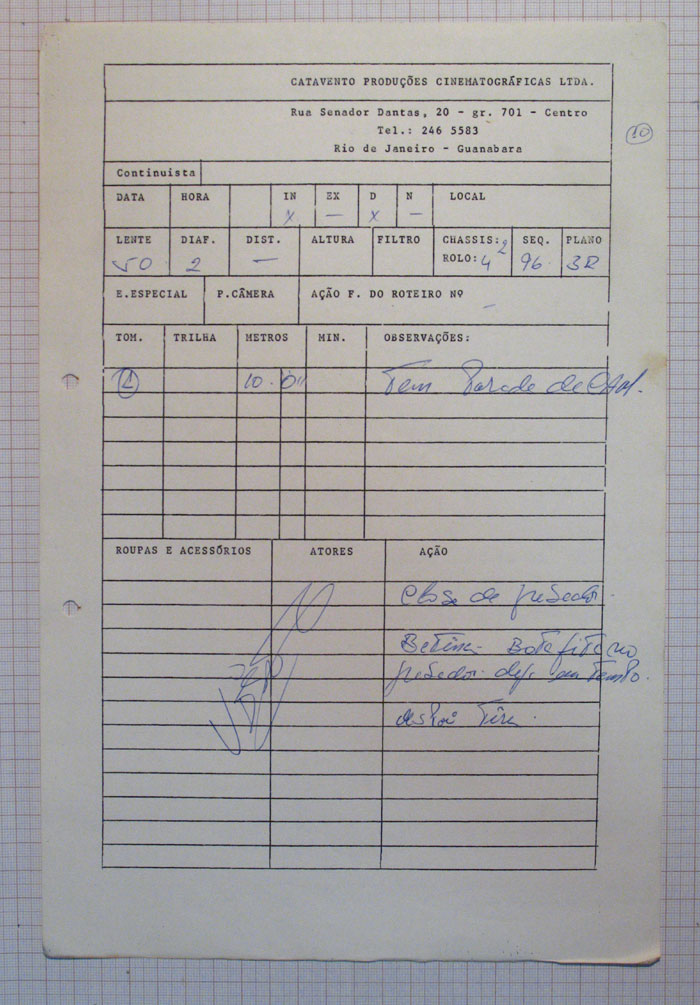 CATAVENTO PRODUÇÕES CINEMATOGRÁFICAS LTDA.
Rua Senador Dantas, 20 - gr. 701 - Centro
Tel.: 246 5583
Rio de Janeiro - Guanabara
10
Continuista
DATA HORA IN EX D N LOCAL
X — X —
LENTE DIAF. DIST. ALTURA FILTRO CHASSIS: 2 SEQ. PLANO
50 2 — ROLO: 4 96
E.ESPECIAL P.CÂMERA AÇÃO F. DO ROTEIRO Nº -
TOM. TRILHA METROS MIN. OBSERVAÇÕES:
10. Tem de
ROUPAS E ACESSÓRIOS ATORES AÇÃO
Close de gravador.
Betina Bota fita no
gravador tempo.